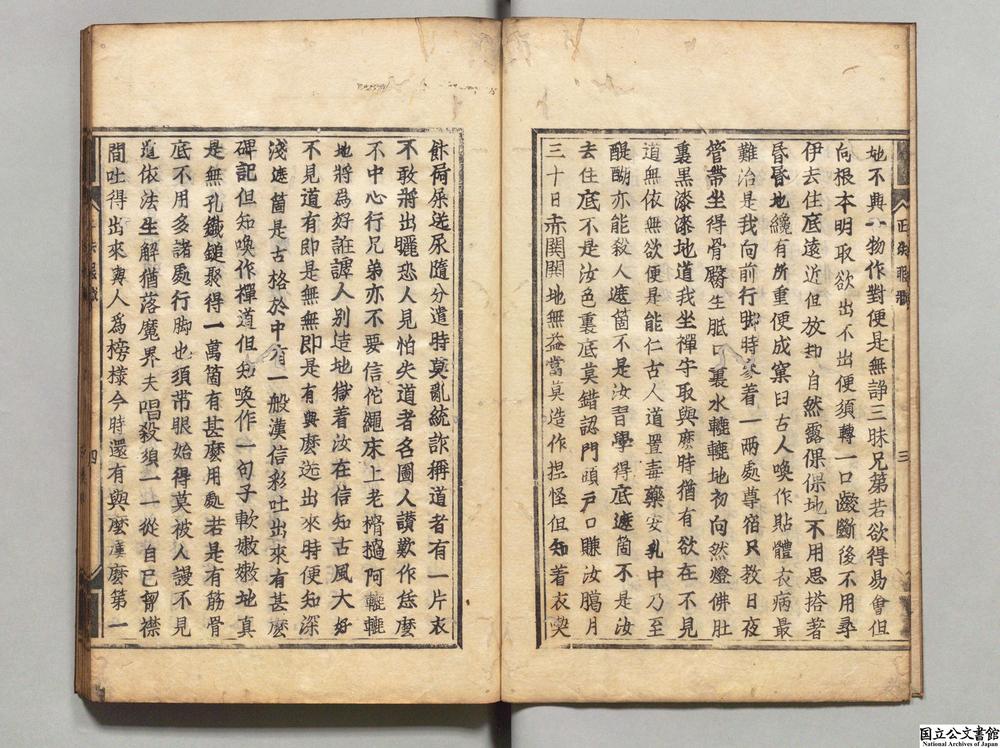 正法眼藏
三
地不與一物作對便是無諍三昧兄弟若欲得易會但
向根本明取欲出不出便須轉一口齩斷後不用尋
伊去住底遠近但放却自然露倮倮地不用思搭著
昏昏地纔有所重便成窠臼古人喚作貼體衣病最
難治是我向前行脚時參着一兩處尊宿只教日夜
管帶坐得骨臀生胝口裏水漉漉地初向然燈佛肚
裏黑漆漆地道我坐禪守取與麽時猶有欲在不見
道無依無欲便是能仁古人道置毒藥安乳中乃至
醍醐亦能殺人遮箇不是汝習學得底遮箇不是汝
去住底不是汝色裏底莫錯認門頭戸口賺汝臈月
三十日赤閧閧地無益當莫造作揑怪但知着衣喫
飯屙屎送尿隨分遣時莫亂統詐稱道者有一片衣
不敢將出曬恐人見怕失道者名圖人讃歎作恁麽
不中心行兄弟亦不要信佗繩床上老榾檛阿轆轆
地將爲好誑譚人別造地獄着汝在信知古風大好
不見道有即是無無即是有與麽送出來時便知深
淺遮箇是古格於中有一般漢信彩吐出來有甚麽
碑記但知喚作禪道但知喚作一句子軟嫩嫩地真
是無孔鐵鎚聚得一萬箇有甚麽用處若是有筋骨
底不用多諸處行脚也須帶眼始得莫被人謾不見
道依法生解猶落魔界夫唱教須一一從自己胷襟
間吐得出來與人爲榜樣今時還有與麽漢麽第一
四
国立公文書館
National Archives of Japan